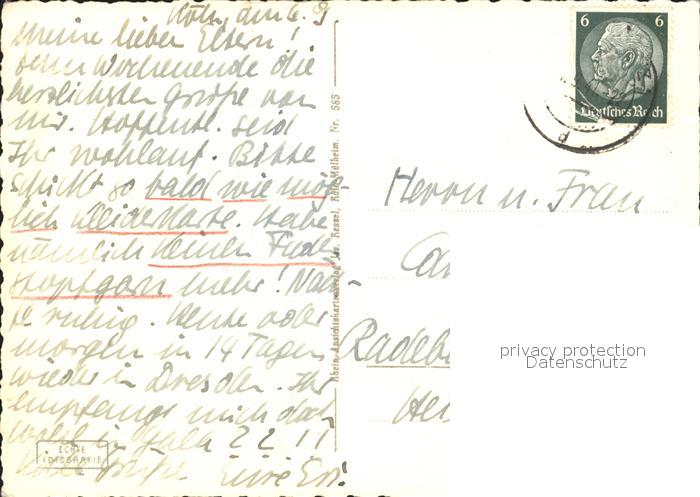 Köln, den 6. 9
Meine lieben Eltern!
zum Wochenende die
herzlichsten Grüße von
mir. Hoffentl. seid
Ihr wohlauf. Bitte
schickt so bald wie mög-
lich Kleiderkarte. Habe
nämlich keinen Faden
Stopfgarn mehr!
ruhig. Heute oder
morgen in 14 Tagen
wieder in Dresden. Ihr
empfangt mich doch
wohl in Gala ? ? !!
Grüße Eure
ECHTE
FOTOGRAFIE
Rhein-Ansichtskartenverlag Jos. Kessel, Köln-Mülheim. Nr. 585
6 6
Deutsches Reich
Herrn u. Frau
Radeb
privacy protection
Datenschutz